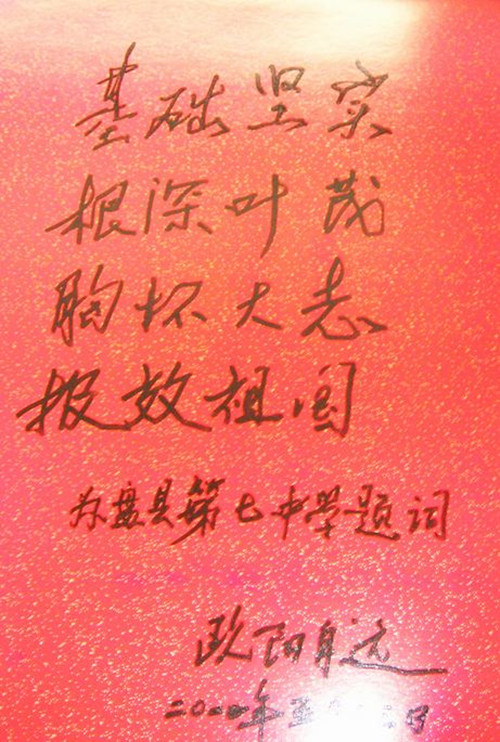 基础坚实
根深叶茂
胸怀大志
报效祖国
为盘县第七中学题词
欧阳自远
年五月日